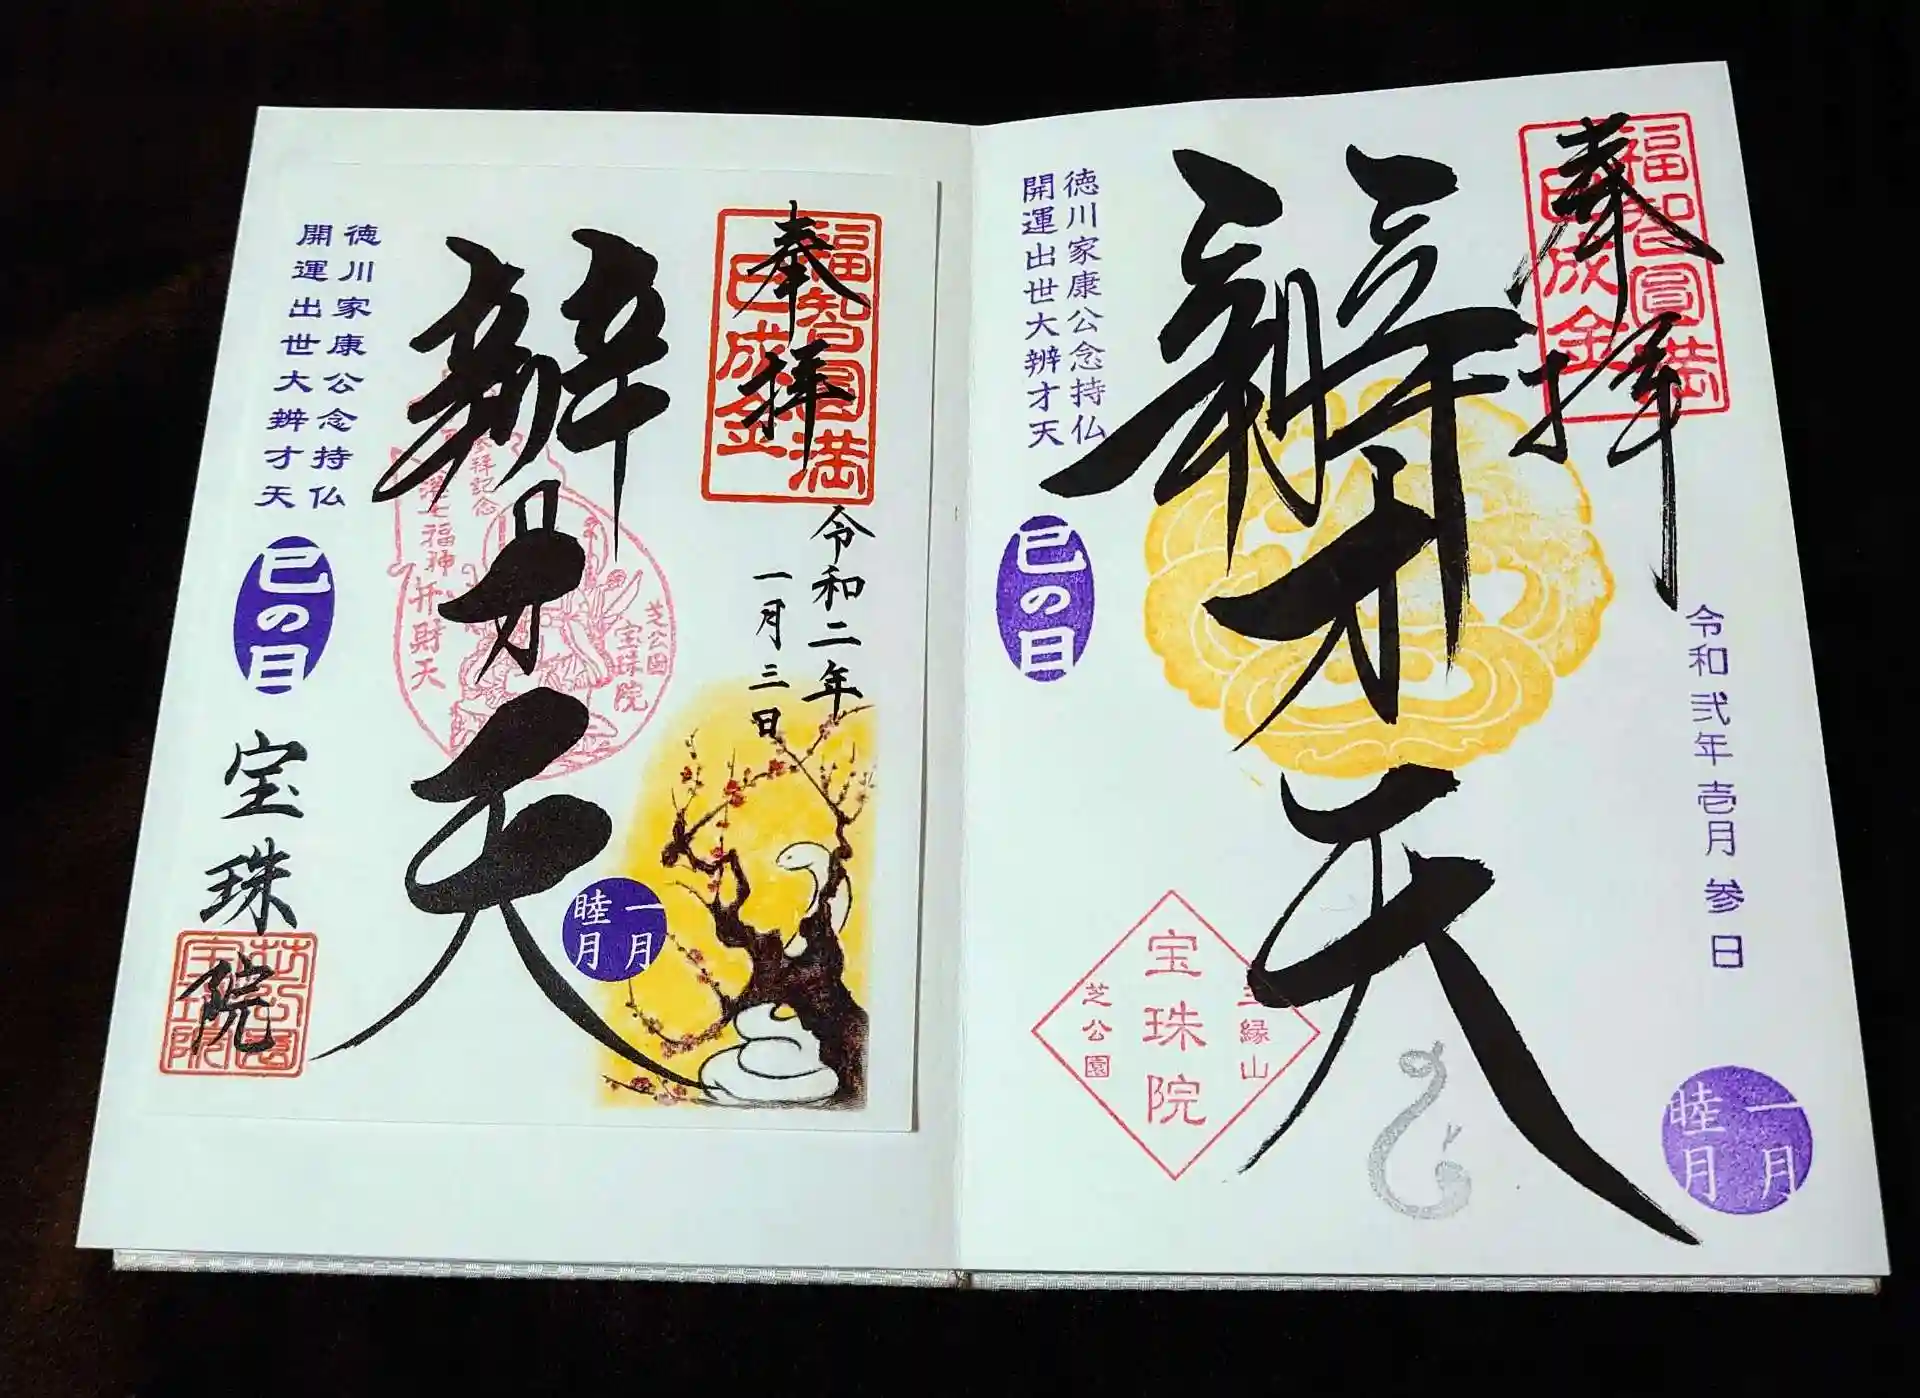 奉拝
福智圓満
巳成金
令和弐年壱月参日
辨才天
徳川家康公念持仏
開運出世大辨才天
巳の日
三縁山
宝珠院
芝公園
一月
睦月
奉拝
福智圓満
巳成金
令和二年
一月三日
辨才天
参拝記念
七福神
弁財天
芝公園
宝珠院
一月
睦月
徳川家康公念持仏
開運出世大辨才天
巳の日
宝珠院
芝公園
宝珠院